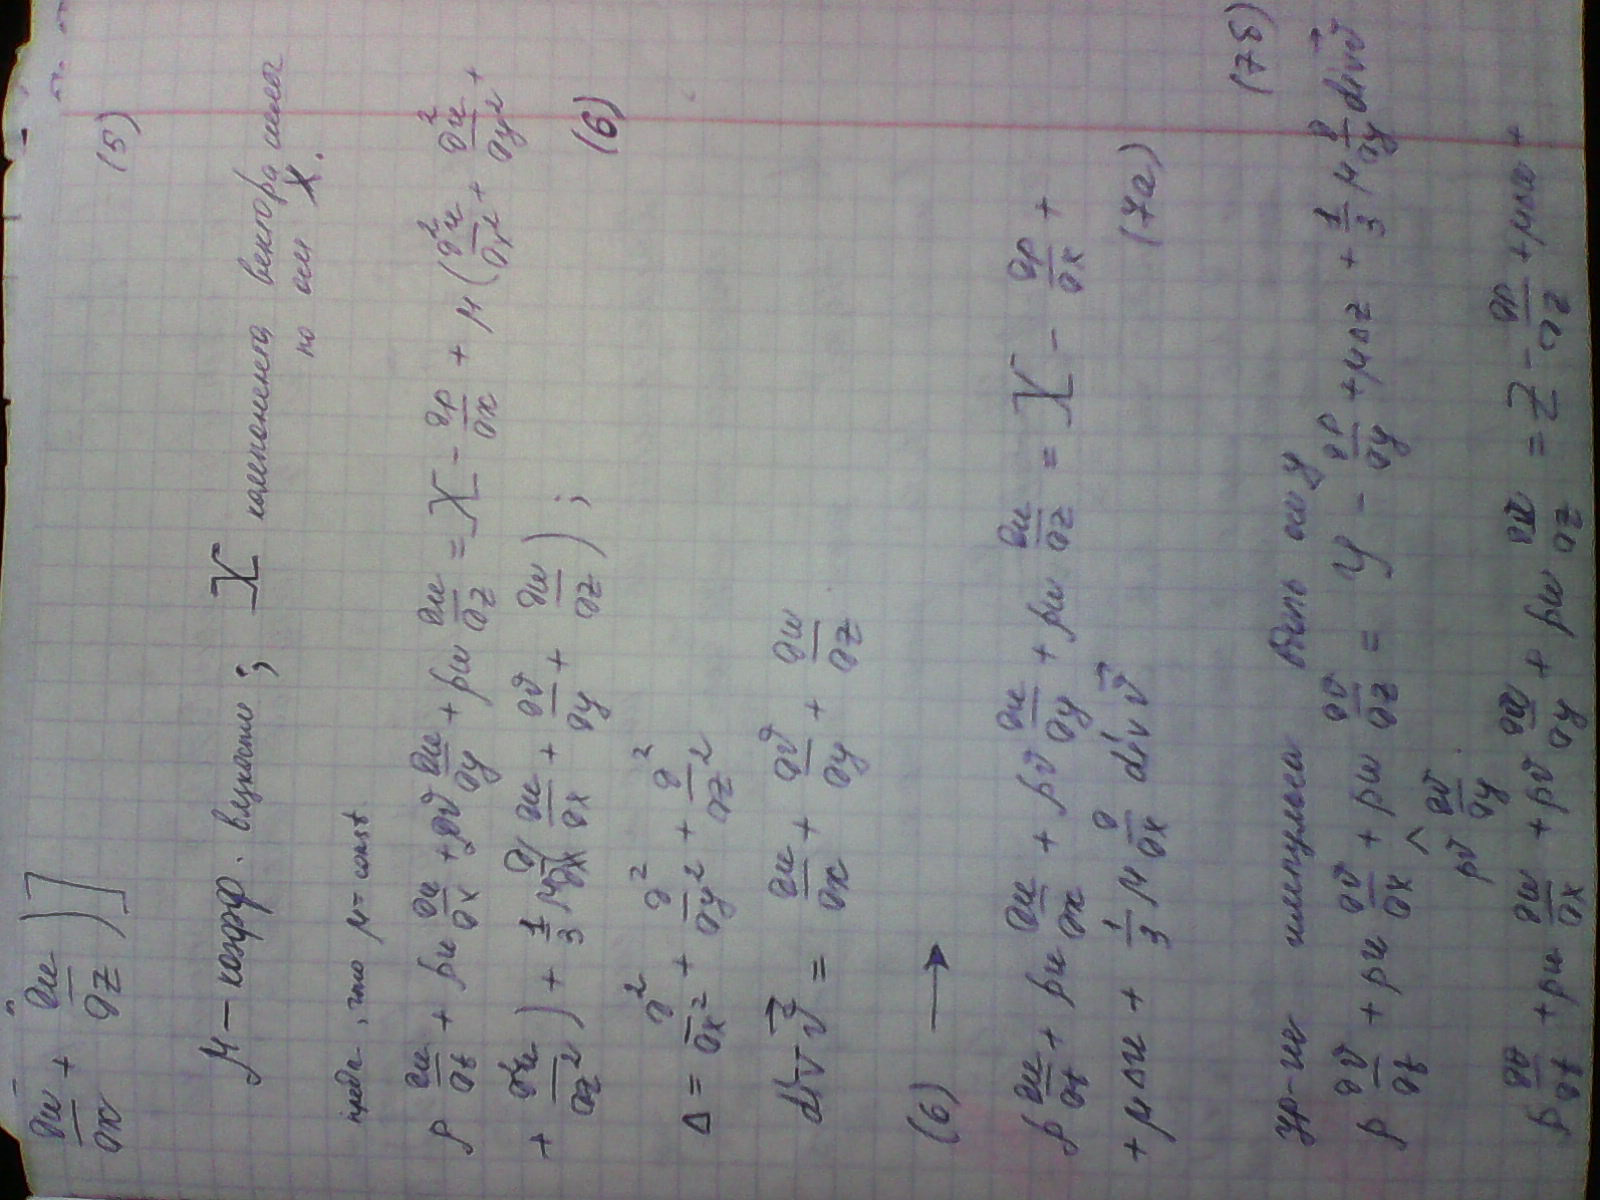 ∂w/∂x + ∂u/∂z)] (5)
μ – коэфф. вязкости; X компонента вектора силы
по оси X.
предп., что μ = const
ρ ∂u/∂t + ρu ∂u/∂x + ρv ∂u/∂y + ρw ∂u/∂z = X − ∂p/∂x + μ(∂²u/∂x² + ∂²u/∂y² +
+ ∂²u/∂z²) + 1/3 μ ∂/∂x (∂u/∂x + ∂v/∂y + ∂w/∂z); (6)
Δ = ∂²/∂x² + ∂²/∂y² + ∂²/∂z²
div v⃗ = ∂u/∂x + ∂v/∂y + ∂w/∂z
(6) →
ρ ∂u/∂t + ρu ∂u/∂x + ρv ∂u/∂y + ρw ∂u/∂z = X − ∂p/∂x +
+ μΔu + 1/3 μ ∂/∂x div v⃗ (7а)
Ур-ие импульса вдоль оси y (7б)
ρ ∂v/∂t + ρu ∂v/∂x + ρw ∂v/∂z = Y − ∂p/∂y + μΔz + 1/3 μ ∂/∂y div v⃗
^ ρv ∂v/∂y
ρ ∂w/∂t + ρu ∂w/∂x + ρv ∂w/∂y + ρw ∂w/∂z = Z − ∂p/∂z + μΔw +